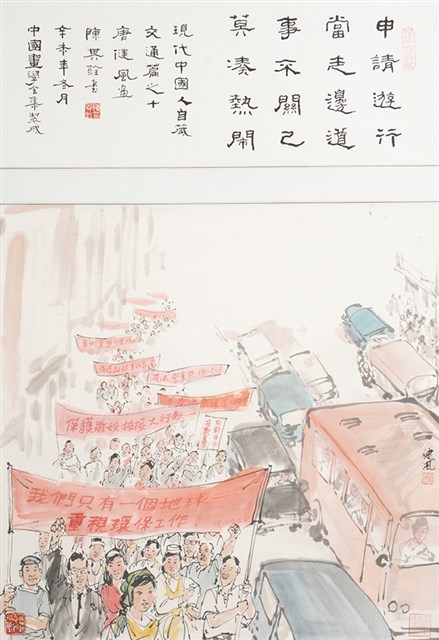 申請遊行
當走邊道
事不關己
莫湊熱鬧
現代中國人自箴
交通篇之十
唐健風畫
陳其銓書
辛未年冬月
中國畫學會集製
健風
保護 大行動
我們只有一個地球
重視環保工作!